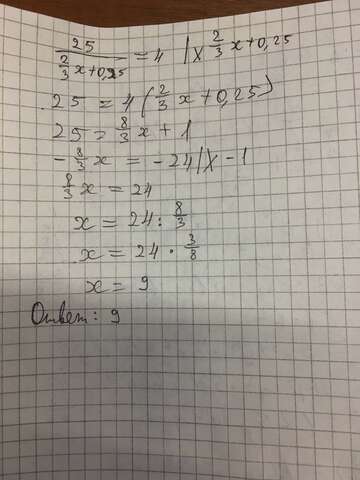 25/(2/3 x + 0,25) = 4 | × 2/3 x + 0,25
25 = 4 (2/3 x + 0,25)
25 = 8/3 x + 1
- 8/3 x = - 24 | × - 1
8/3 x = 24
x = 24 : 8/3
x = 24 · 3/8
x = 9
Ответ: 9